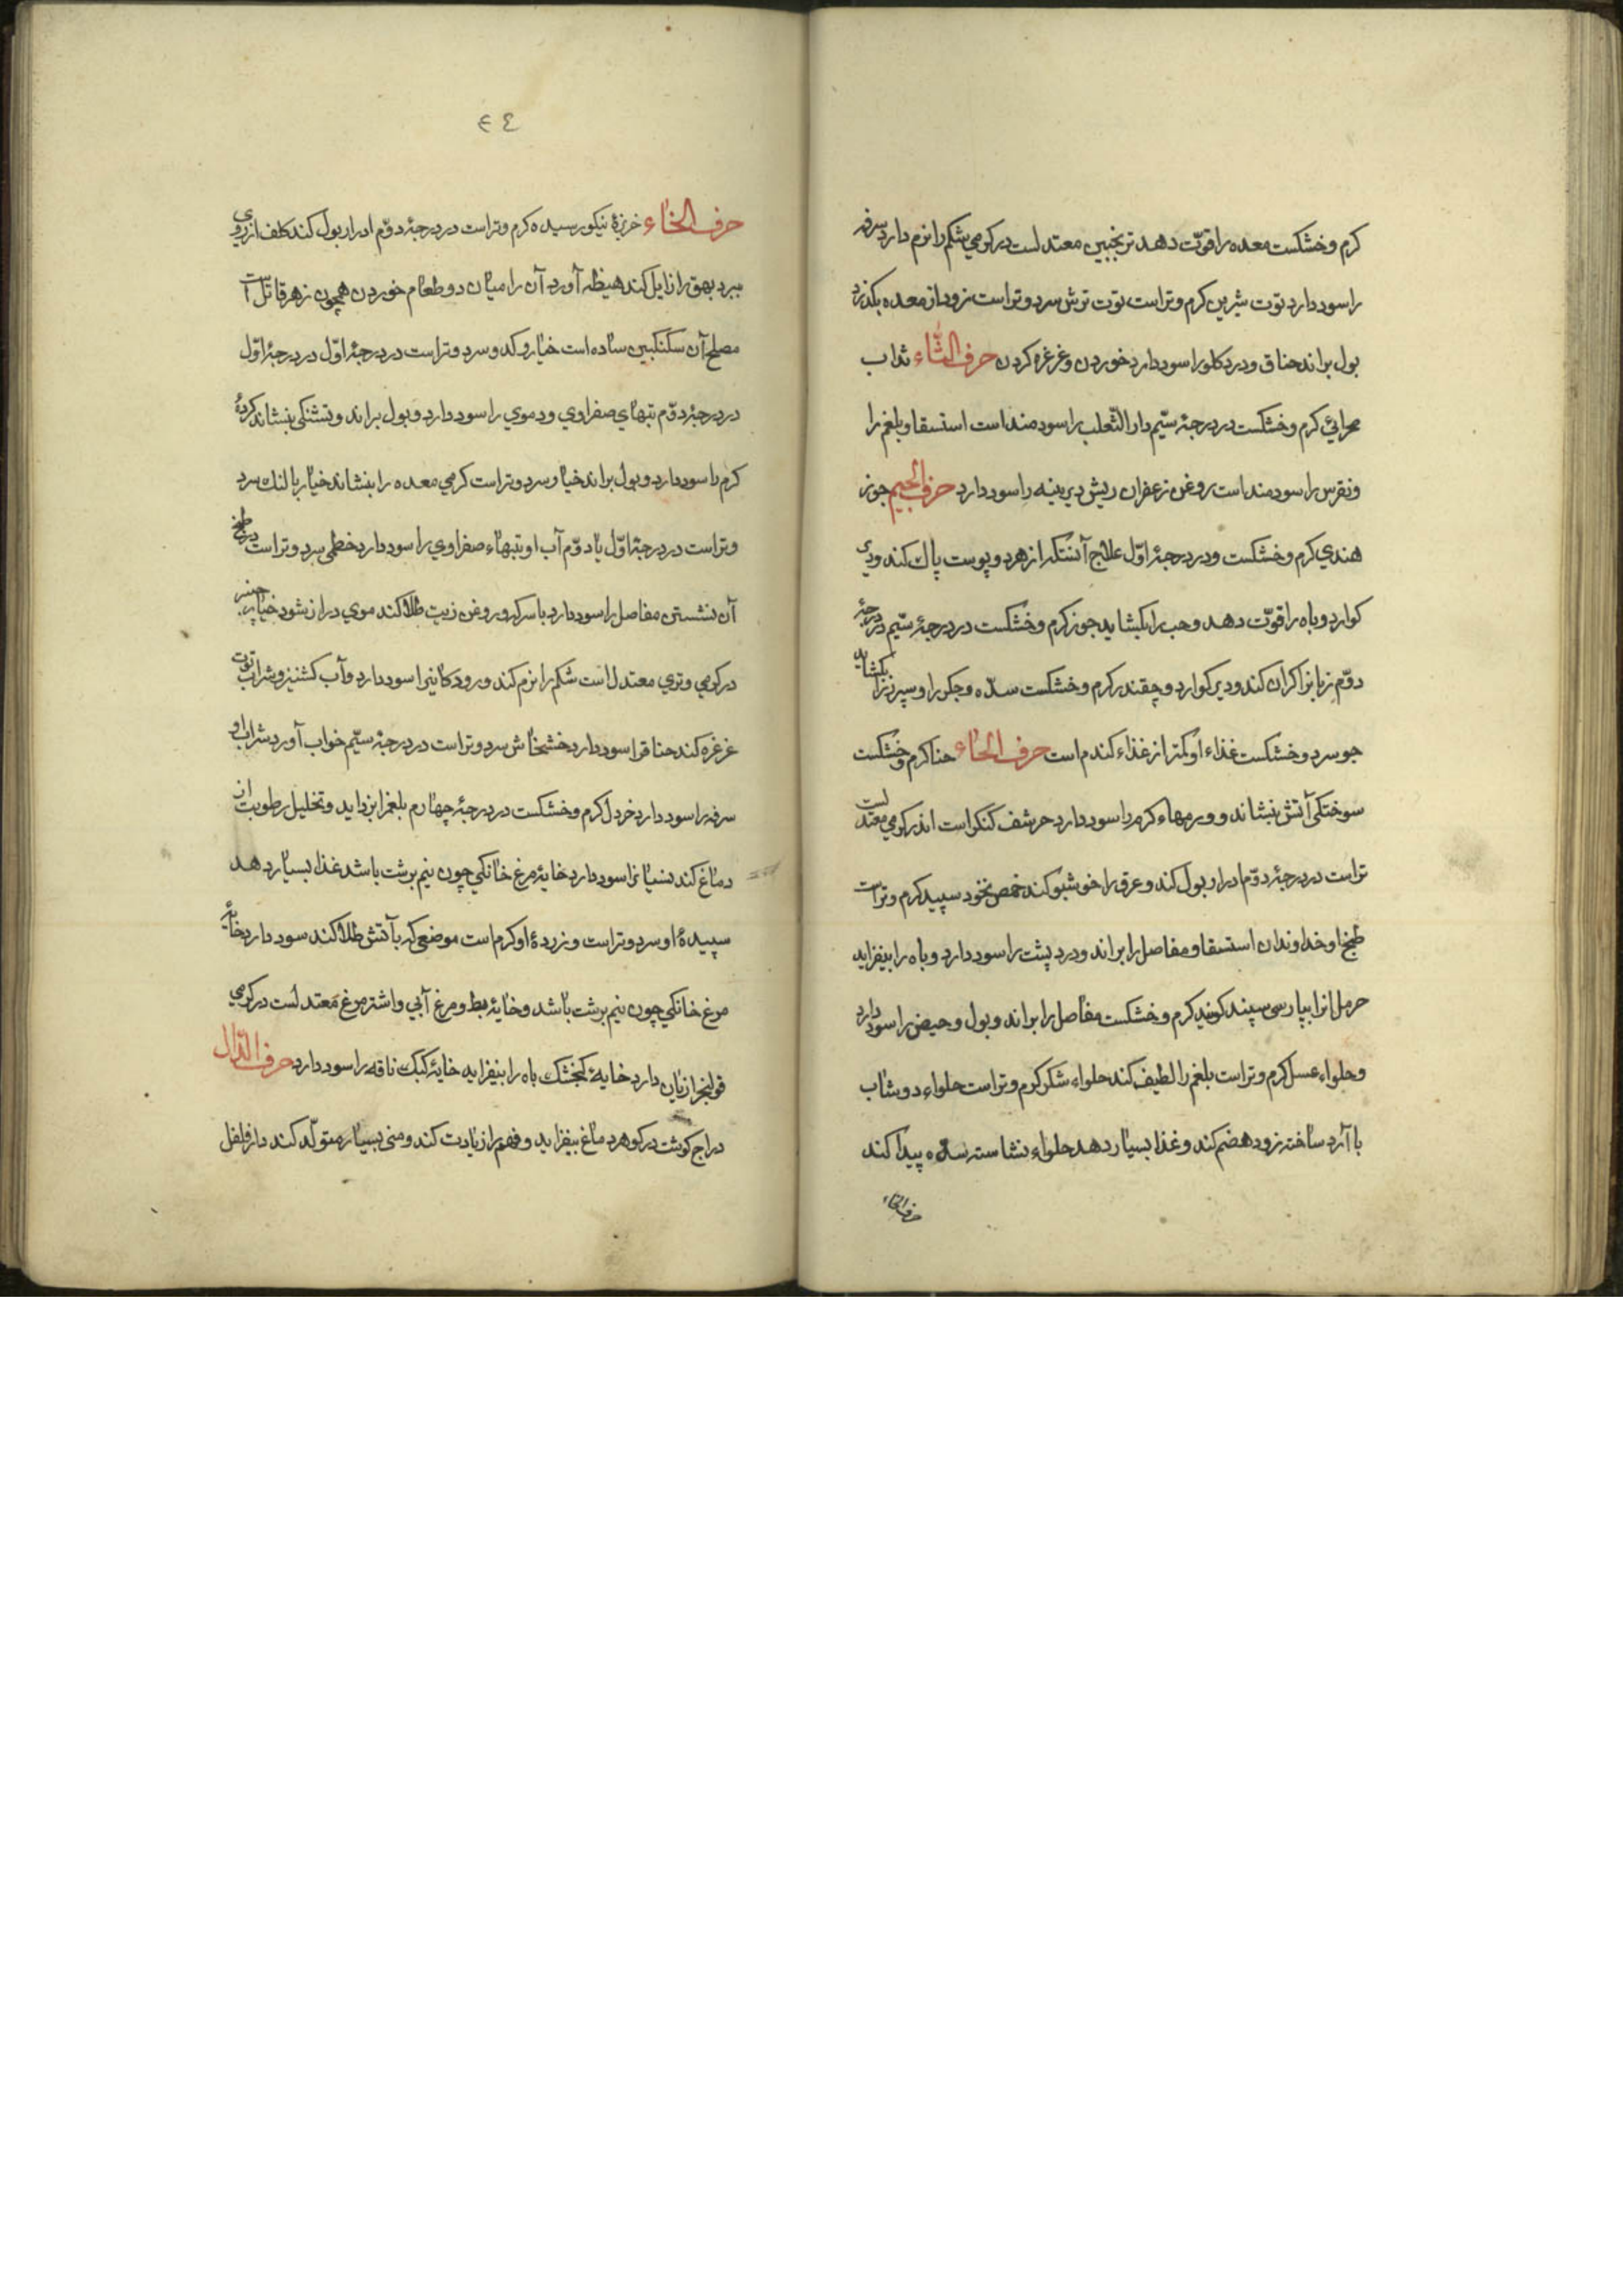 كرم و خشكست معده را قوّت دهد ترنجبين معتدلست در كرمي شكم را نرم دارد سرفه
را سود دارد توت شيرين كرم و تراست توت ترش سرد و تراست زود از معده بكذرد
بول براند خناق و درد كلو را سود دارد خوردن و غرغره كردن حرف الثّاء ثداب
صحرائي كرم و خشكست در درجۀ سيّم دار الثّعلب را سودمند است استسقا و بلغم را
و نقرس را سودمند است روغن زعفران ريش ديرينه را سود دارد حرف الجيم جوز
هندي كرم و خشكست و در درجۀ اوّل علاج آنستكه از هر دو پوست پاك كند و دير
كوارد و باه را قوّت دهد و حب را بكشايد جوز كرم و خشكست در درجۀ سيّم در درجۀ
دوّم زبانرا كران كند و دير كوارد و چقندر كرم و خشكست سدّه و جكر را و سپرز را بكشايد
جو سرد و خشكست غذاء او كمتر از غذاء كندم است حرف الحاء حنا كرم و خشكست
سوختكى آتش بنشاند و ورمهاء كرم را سود دارد حرشف كنكر است اندر كرمي معتدلست
تراست در درجۀ دوّم ادرار بول كند و عرق را خوشبو كند حمص نخود سپيد كرم و تراست
طبخ او خداوندان استسقا و مفاصل را براند و درد پشت را سود دارد و باه را بيفزايد
حرمل انرا بپارسى سپند كويند كرم و خشكست مفاصل را براند و بول و حيض را سود دارد
و حلواء عسل كرم و تراست بلغم را لطيف كند حلواء شكر كرم و تراست حلواء دوشاب
با آرد ساخته زود هضم كند و غذا بسيار دهد حلواء نشاسته سدّه پيدا كند
حرف الخاء
٤٤
حرف الخاء خربزۀ نيكو رسيده كرم و تراست در درجۀ دوّم ادرار بول كند كلف از روي
ببرد بهق را زايل كند هيضه آورد آن را ميان دو طعام خوردن همچون زهر قاتل است
مصلح آن سكنكبين ساده است خيار و كدو سرد و تراست در درجۀ اوّل در درجۀ اوّل
در درجۀ دوّم تبهاي صفراوي و دموي را سود دارد و بول براند و تشنكى بنشاند كردۀ
كرم را سود دارد و بول براند خيار سرد و تراست كرمي معده را بنشاند خيار بالنك سرد
و تراست در درجۀ اوّل يا دوّم آب او تبهاء صفراوي را سود دارد خطمى سرد و تراست در طبخ
آن نشستن مفاصل را سود دارد با سركه و روغن زيت طلا كند موي دراز شود خيار چنبر
در كرمي و تري معتدل است شكم را نرم كند و رودكانيرا سود دارد و آب كشنيز و شراب توت
غرغره كند خناق را سود دارد خشخاش سرد و تراست در درجۀ سيّم خواب آورد شراب او
سرفه را سود دارد خردل كرم و خشكست در درجۀ چهارم بلغم را بزدايد و تحليل رطوبت از
دماغ كند نسيانرا سود دارد خايۀ مرغ خانكي چون نيم برشت باشد غذا بسيار دهد
سپيدۀ او سرد و تراست و زردۀ او كرم است موضعى كه بآتش طلا كند سود دارد خايۀ
مرغ خانكي چون نيم برشت باشد و خايۀ بط و مرغ آبي و اشتر مرغ معتدلست در كرمي
قولنج را زيان دارد خايۀ كنجشك باه را بيفزايد خايۀ كبك ناقه را سود دارد حرف الدّال
دراج كوشت در كوهر دماغ بيفزايد و فهم را زيادت كند و منى بسيار متولّد كند دارفلفل